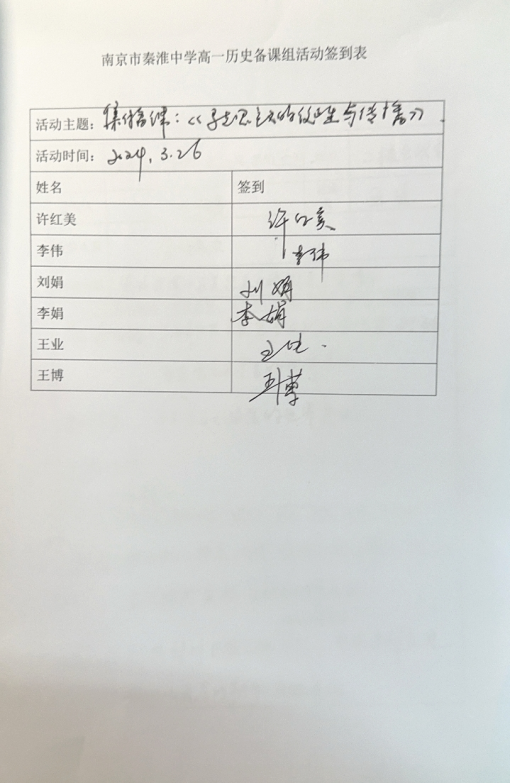 南京市秦淮中学高一历史备课组活动签到表
活动主题：集备课：《马克思主义的诞生与传播》.
活动时间：2024.3.26
姓名 签到
许红美 许红美
李伟 李伟
刘娟 刘娟
李娟 李娟
王业 王业.
王博 王博